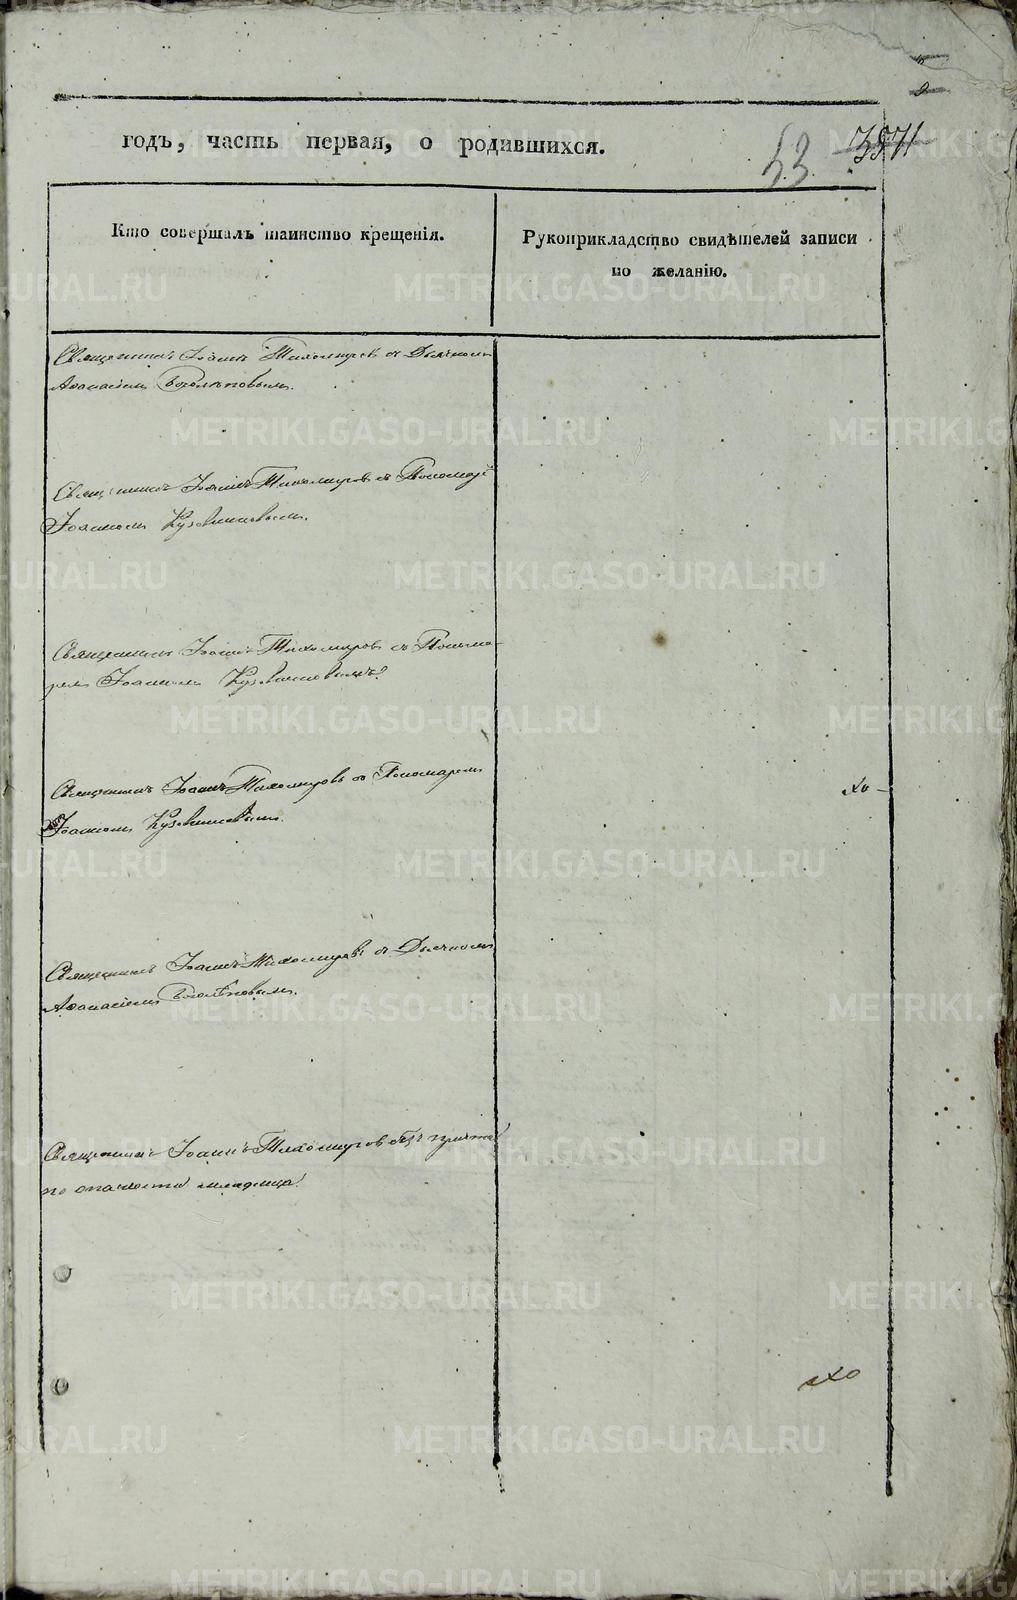 53.
3571
годъ, часть первая, о родившихся.
Кто совершалъ таинство крещенія.
Рукоприкладство свидѣтелей записи
по желанію.
Священникъ Іоаннъ Тихомировъ съ Дьячкомъ
Аѳанасіемъ Боголѣповымъ.
Священникъ Іоаннъ Тихомировъ съ Пономаре
Іоанномъ Кузовниковымъ.
Священникъ Іоаннъ Тихомировъ съ Понома-
ремъ Іоанномъ Кузовниковымъ.
Священникъ Іоаннъ Тихомировъ съ Пономаремъ
Іоанномъ Кузовниковымъ.
Священникъ Іоаннъ Тихомировъ съ Дьячкомъ
Аѳанасіемъ Боголѣповымъ.
Священникъ Іоаннъ Тихомировъ безъ причта
по опасности младенца.
METRIKI.GASO-URAL.RU